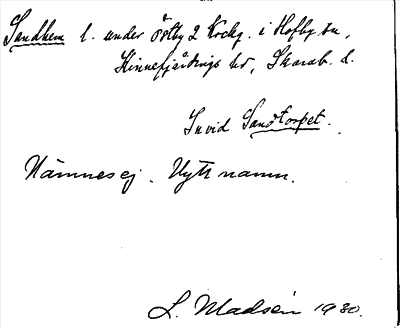 Sandhem l. under Östby 2 Krckg. i Hofby sn,
Kinnefjärdings hd, Skarab. l.
Invid Sandtorpet.
Nämnes ej. Nytt namn.
L. Madsén 1930.